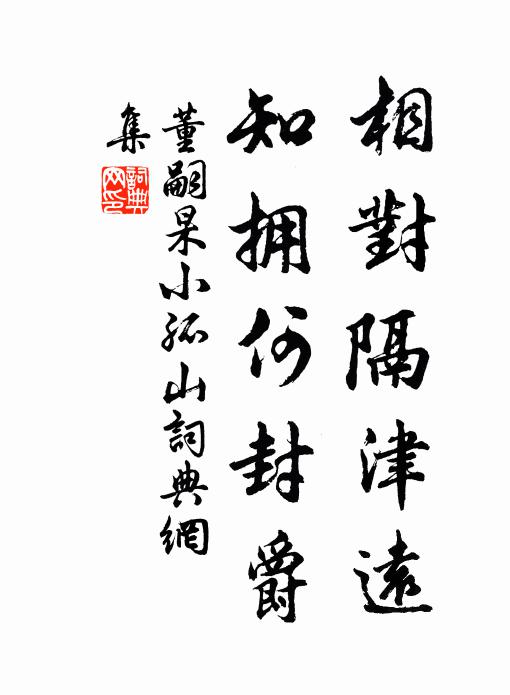 相對隔津遠
知拥何封爵
董嗣杲小孤山詞典網
集
詞典网印